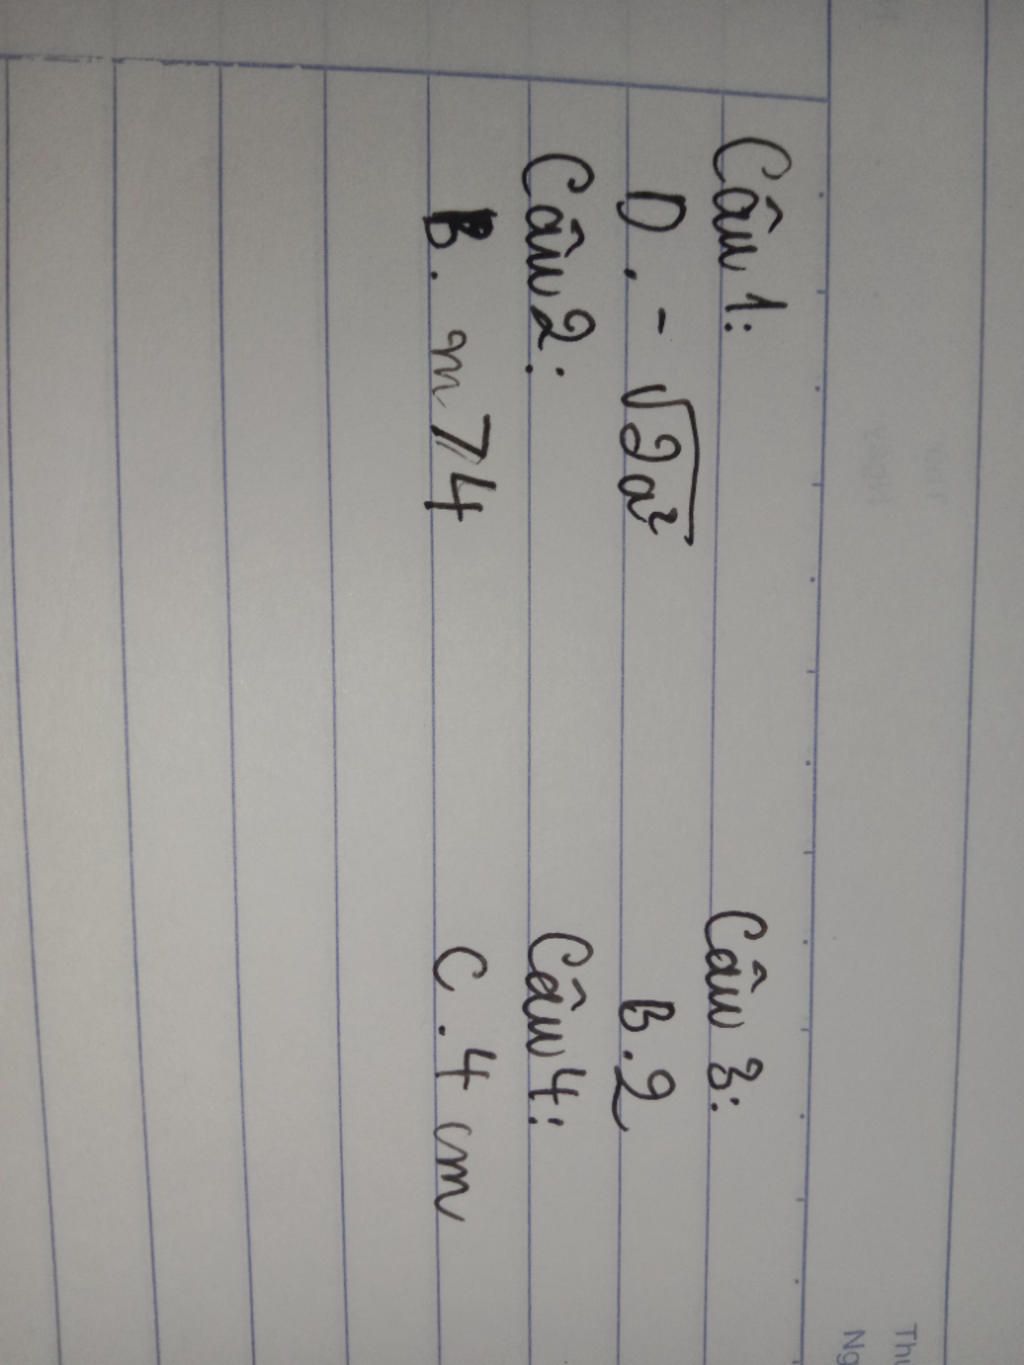 Câu 1:
D. -√2a²
Câu 2:
B. m > 4
Câu 3:
B. 2
Câu 4:
C. 4 cm
Th
Ng